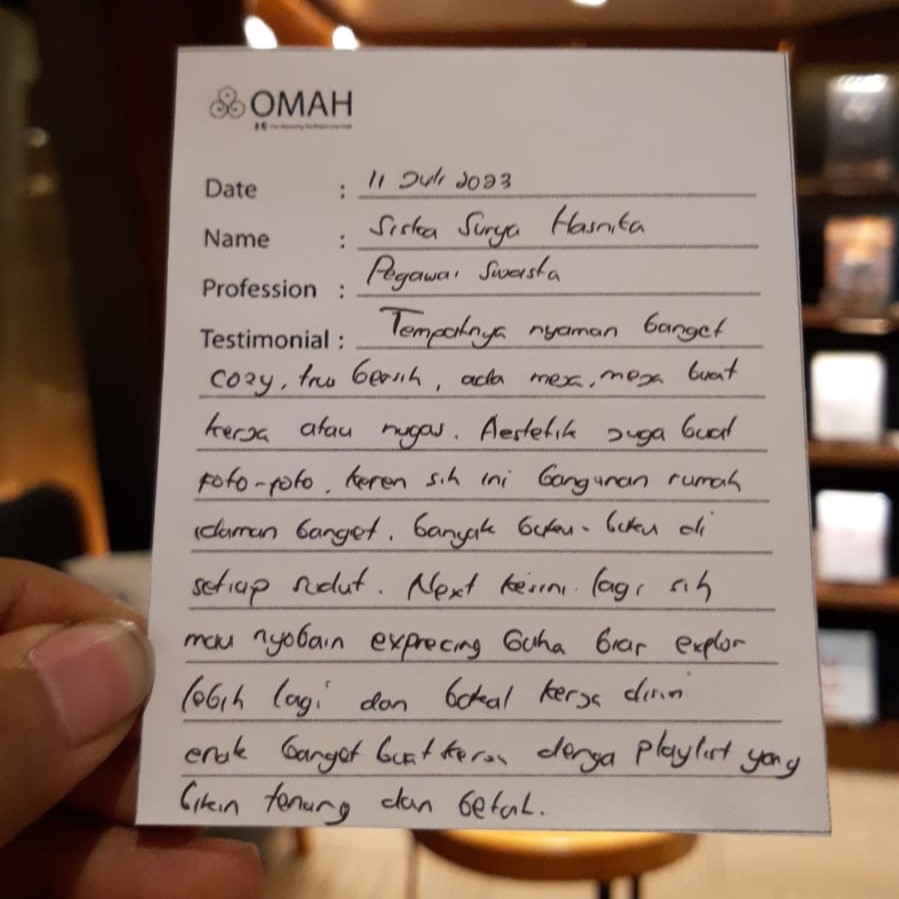 OMAH
Date : 11 Juli 2023
Name : Siska Surya Hasnita
Profession : Pegawai Swasta
Testimonial : Tempatnya nyaman banget
cozy, trus bersih, ada meja, meja buat
kerja atau nugas. Aestetik juga buat
foto-foto. Keren sih ini bangunan rumah
idaman banget. banyak buku-buku di
setiap sudut. Next kesini lagi sih
mau nyobain exprecing Guha biar explor
lebih lagi dan bakal kerja disini
enak banget buat kerja denga playlist yang
bikin tenang dan betah.